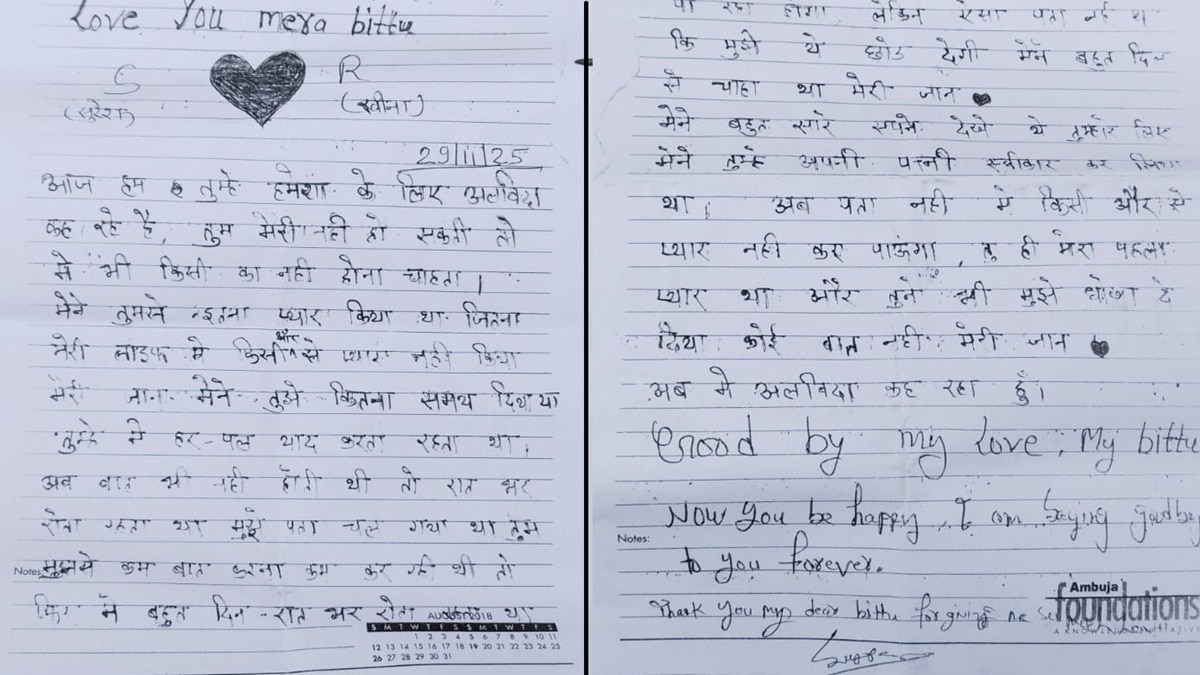 Love You mera bittu
S R
(सुरेश) (रवीना)
29/11/25
आज हम तुम्हे हमेशा के लिए अलविदा
कह रहे है, तुम मेरी नही हो सकती तो
मे भी किसी का नही होना चाहता।
मेने तुमसे इतना प्यार किया था जितना
मेरी लाइफ मे किसी और से प्यार नही किया
मेरी जान मेने तुझे कितना समय दिया था
तुम्हे मे हर-पल याद करता रहता था।
अब बात भी नही होती थी तो रात भर
रोता रहता था मुझे पता चल गया था तुम
मुझसे कम बात करना कम कर रही थी तो
फिर मे बहुत दिन-रात भर रोता था
Notes:
AUGUST 2018
S M T W T F S S M T W T F S
1 2 3 4 5 6 7 8 9 10 11
12 13 14 15 16 17 18 19 20 21 22 23 24 25
26 27 28 29 30 31
रहा होगा लेकिन ऐसा पता नही था
कि मुझे ये छोड देगी मेने बहुत दिल
से चाहा था मेरी जान
मेने बहुत सारे सपने देखे थे तुम्हारे लिए
मेने तुम्हे अपनी पत्नी स्वीकार कर लिया
था। अब पता नही मे किसी और से
प्यार नही कर पाऊंगा, तु ही मेरा पहला
प्यार था और तुने भी मुझे धोखा दे
दिया कोई बात नही मेरी जान
अब मे अलविदा कह रहा हूँ।
Good by my love, My bittu
Now you be happy, I am saying goodby
Notes:
to you forever.
Thank you my dear bittu for giving me
Ambuja
foundations